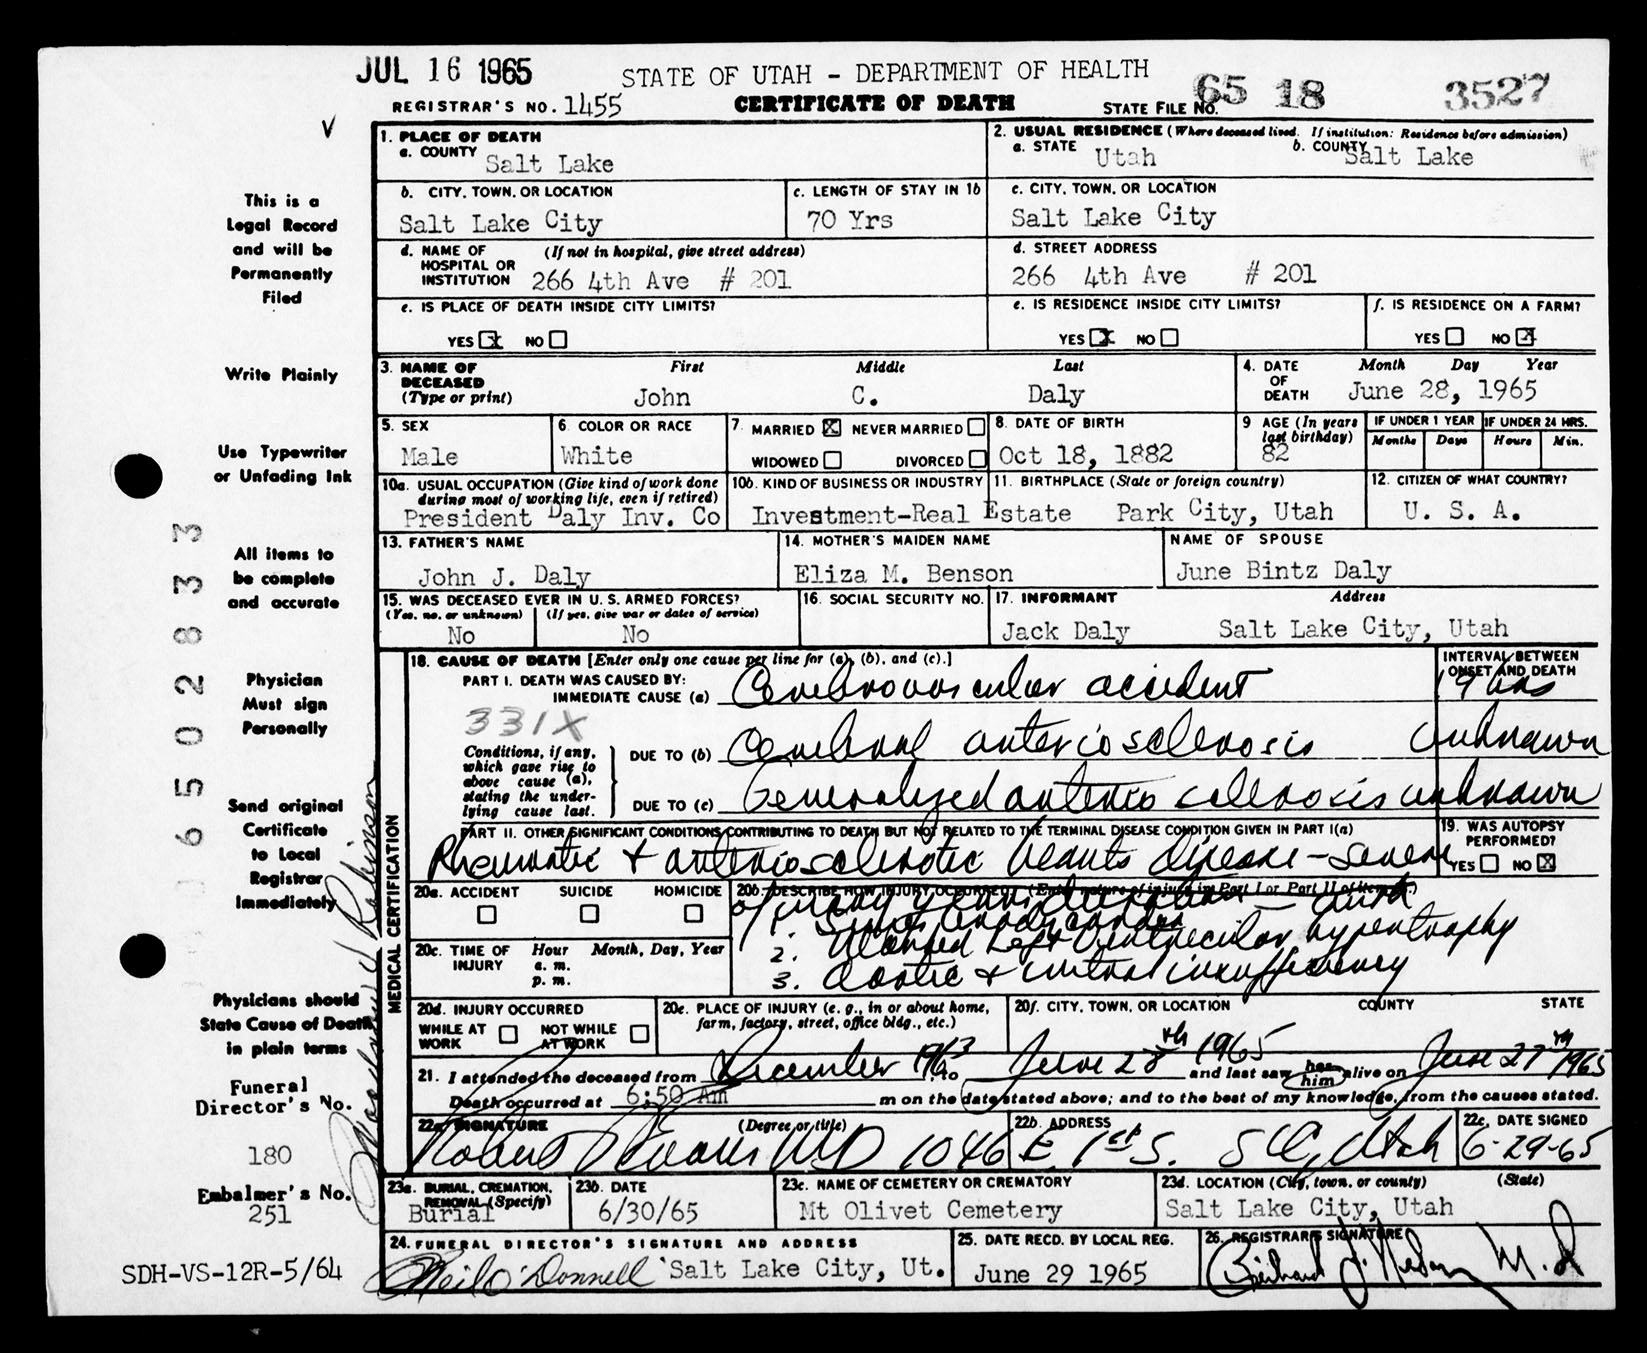 JUL 16 1965
STATE OF UTAH - DEPARTMENT OF HEALTH
REGISTRAR'S NO. 1455
CERTIFICATE OF DEATH
STATE FILE NO. 65 18 3527
V
This is a
Legal Record
and will be
Permanently
Filed
Write Plainly
Use Typewriter
or Unfading Ink
All items to
be complete
and accurate
Physician
Must sign
Personally
Send original
Certificate
to Local
Registrar
Immediately
Physicians should
State Cause of Death
in plain terms
Funeral
Director's No.
180
Embalmer's No.
251
SDH-VS-12R-5/64
6 5 0 2 8 3 3
1. PLACE OF DEATH
a. COUNTY Salt Lake
2. USUAL RESIDENCE (Where deceased lived. If institution: Residence before admission)
a. STATE Utah b. COUNTY Salt Lake
b. CITY, TOWN, OR LOCATION
Salt Lake City
c. LENGTH OF STAY IN 1b
70 Yrs
c. CITY, TOWN, OR LOCATION
Salt Lake City
d. NAME OF (If not in hospital, give street address)
HOSPITAL OR
INSTITUTION 266 4th Ave # 201
d. STREET ADDRESS
266 4th Ave # 201
e. IS PLACE OF DEATH INSIDE CITY LIMITS?
YES X NO
e. IS RESIDENCE INSIDE CITY LIMITS?
YES X NO
f. IS RESIDENCE ON A FARM?
YES NO X
3. NAME OF First Middle Last
DECEASED
(Type or print) John C. Daly
4. DATE Month Day Year
OF
DEATH June 28, 1965
5. SEX
Male
6. COLOR OR RACE
White
7. MARRIED X NEVER MARRIED
WIDOWED DIVORCED
8. DATE OF BIRTH
Oct 18, 1882
9 AGE (In years
last birthday)
82
IF UNDER 1 YEAR
Months Days
IF UNDER 24 HRS.
Hours Min.
10a. USUAL OCCUPATION (Give kind of work done
during most of working life, even if retired)
President Daly Inv. Co
10b. KIND OF BUSINESS OR INDUSTRY
Investment-Real Estate
11. BIRTHPLACE (State or foreign country)
Park City, Utah
12. CITIZEN OF WHAT COUNTRY?
U. S. A.
13. FATHER'S NAME
John J. Daly
14. MOTHER'S MAIDEN NAME
Eliza M. Benson
NAME OF SPOUSE
June Bintz Daly
15. WAS DECEASED EVER IN U. S. ARMED FORCES?
(Yes, no, or unknown) (If yes, give war or dates of service)
No No
16. SOCIAL SECURITY NO.
17. INFORMANT Address
Jack Daly Salt Lake City, Utah
MEDICAL CERTIFICATION
18. CAUSE OF DEATH [Enter only one cause per line for (a), (b), and (c).]
INTERVAL BETWEEN
ONSET AND DEATH
PART I. DEATH WAS CAUSED BY:
IMMEDIATE CAUSE (a) Cerebrovascular accident
331X
Conditions, if any,
which gave rise to
above cause (a),
stating the under-
lying cause last.
DUE TO (b) Cerebral arteriosclerosis unknown
DUE TO (c) Generalized arterio sclerosis unknown
PART II. OTHER SIGNIFICANT CONDITIONS CONTRIBUTING TO DEATH BUT NOT RELATED TO THE TERMINAL DISEASE CONDITION GIVEN IN PART I(a)
Rheumatic + arteriosclerotic hearts disease - severe
19. WAS AUTOPSY
PERFORMED?
YES NO X
20a. ACCIDENT SUICIDE HOMICIDE
20b. DESCRIBE HOW INJURY OCCURRED. (Enter nature of injury in Part I or Part II of item 18.)
of many years duration - with
1. Sinus bradycardia
2. Marked Left Ventricular hypertrophy
3. Aortic + mitral insufficiency
20c. TIME OF Hour Month, Day, Year
INJURY a. m.
p. m.
20d. INJURY OCCURRED
WHILE AT WORK NOT WHILE AT WORK
20e. PLACE OF INJURY (e. g., in or about home,
farm, factory, street, office bldg., etc.)
20f. CITY, TOWN, OR LOCATION COUNTY STATE
21. I attended the deceased from December 1963 to June 28th 1965 and last saw her him alive on June 27th 1965
Death occurred at 6:50 Am m on the date stated above; and to the best of my knowledge, from the causes stated.
22a. SIGNATURE (Degree or title)
Robert Evans MD
22b. ADDRESS
1046 E. 1st S. SLC, Utah
22c. DATE SIGNED
6-29-65
23a. BURIAL, CREMATION,
REMOVAL (Specify)
Burial
23b. DATE
6/30/65
23c. NAME OF CEMETERY OR CREMATORY
Mt Olivet Cemetery
23d. LOCATION (City, town, or county) (State)
Salt Lake City, Utah
24. FUNERAL DIRECTOR'S SIGNATURE AND ADDRESS
Neil O'Donnell Salt Lake City, Ut.
25. DATE RECD. BY LOCAL REG.
June 29 1965
26. REGISTRAR'S SIGNATURE
M.D